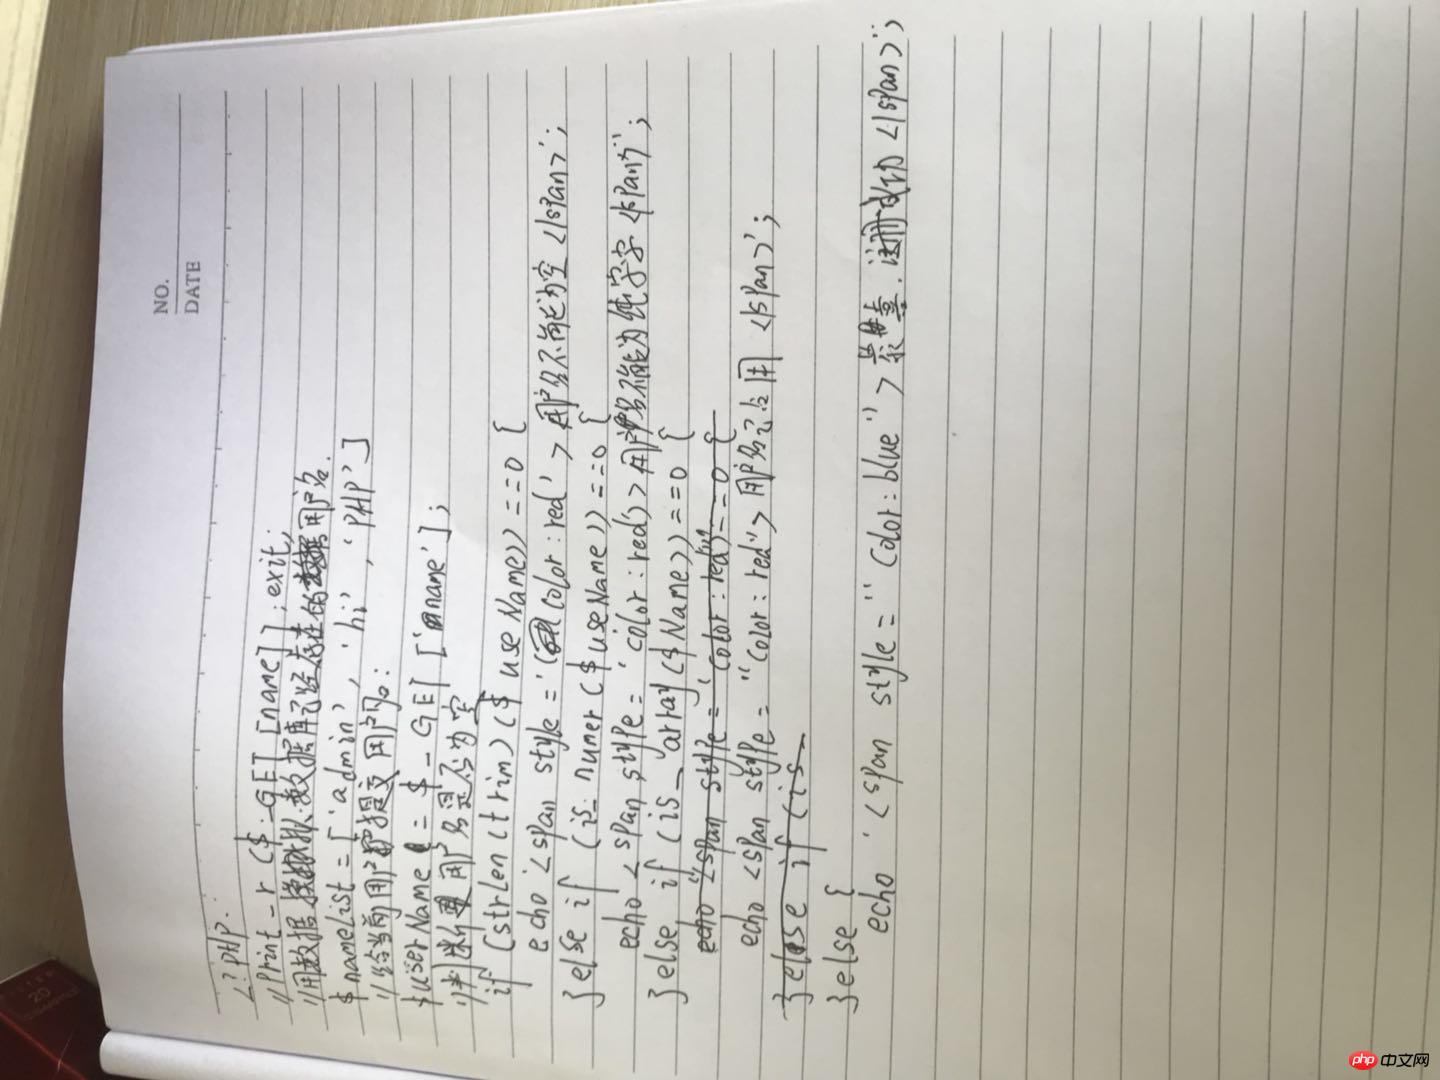 NO.
DATE
<?PHP
//Print-r ($-GET [name]; exit;
//用数据模拟数据库已经存在的用户名.
$nameList = ['admin', 'hi', 'PHP']
//给当前用户提交用户名:
$userName = $-GET ['name'];
//判断用户名是否为空
if (strlen (trim) ($ use Name)) ==0 {
echo '<span style='color:red'>用户名不能为空</span>';
}else if (is_numer ($useName)) ==0 {
echo <span style='color:red'>用户名不能为纯字字</span>";
}else if (is_array ($Name)) ==0 {
echo "<span style="color:red"==0 {
echo <span style="color:red">用户名已占用</span>';
}else if (is
}else {
echo '<span style="color:blue">恭喜.注册成功</span>";
php 中文网